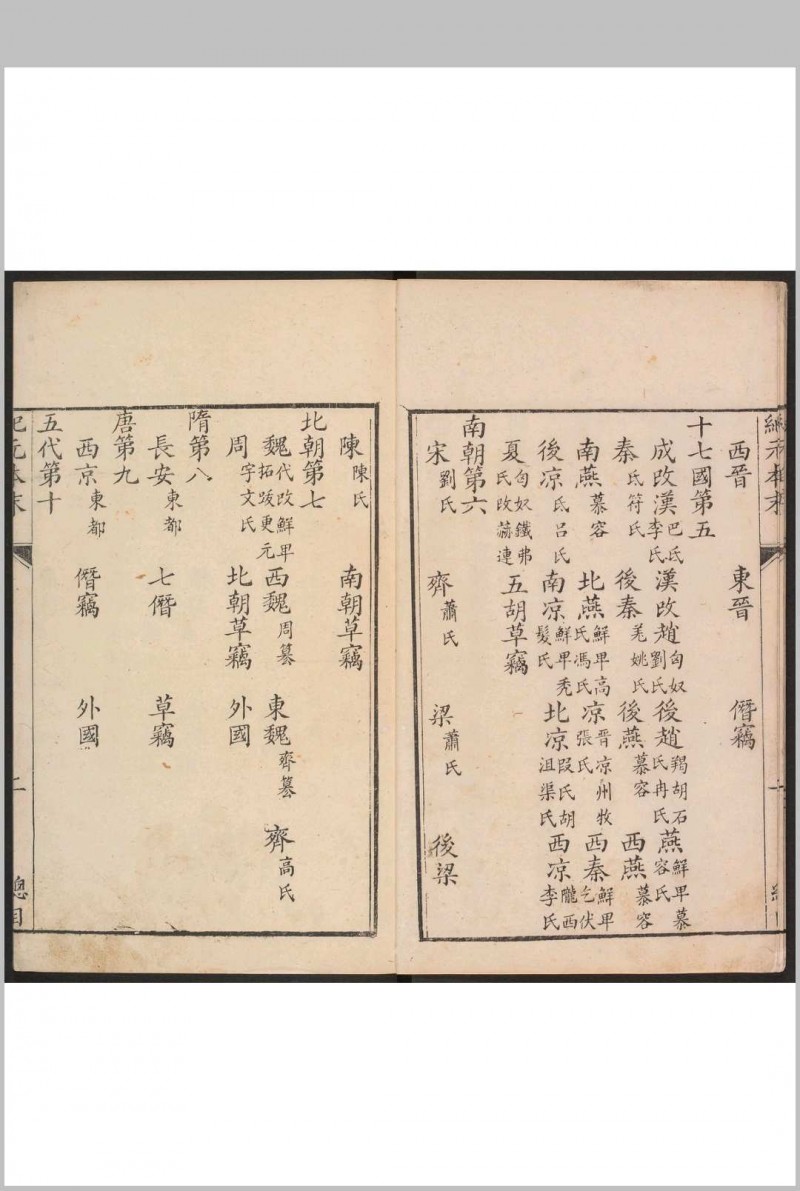 西晉　東晉　僭竊
十七國第五
成改漢巴氐李氏　漢改趙匈奴劉氏　後趙羯胡石氏冉氏　燕鮮卑慕容氏
秦氐符氏　後秦羌姚氏　後燕慕容　西燕慕容
南燕慕容　北燕鮮卑高氏馮氏　涼晉凉州牧張氏　西秦鮮卑乞伏
後凉氐呂氏　南凉鮮卑秃髮氏　北凉段氏胡沮渠氏　西凉隴西李氏
夏匈奴鐵弗氏改赫連　五胡草竊
南朝第六
宋劉氏　齊蕭氏　梁蕭氏　後梁
陳陳氏　南朝草竊
北朝第七
魏代改鮮卑拓跋更元　西魏周篡　東魏齊篡　齊高氏
周宇文氏　北朝草竊　外國
隋第八
長安東都　七僭　草竊
唐第九
西京東都　僭竊　外國
五代第十
紀元本末　二　總目